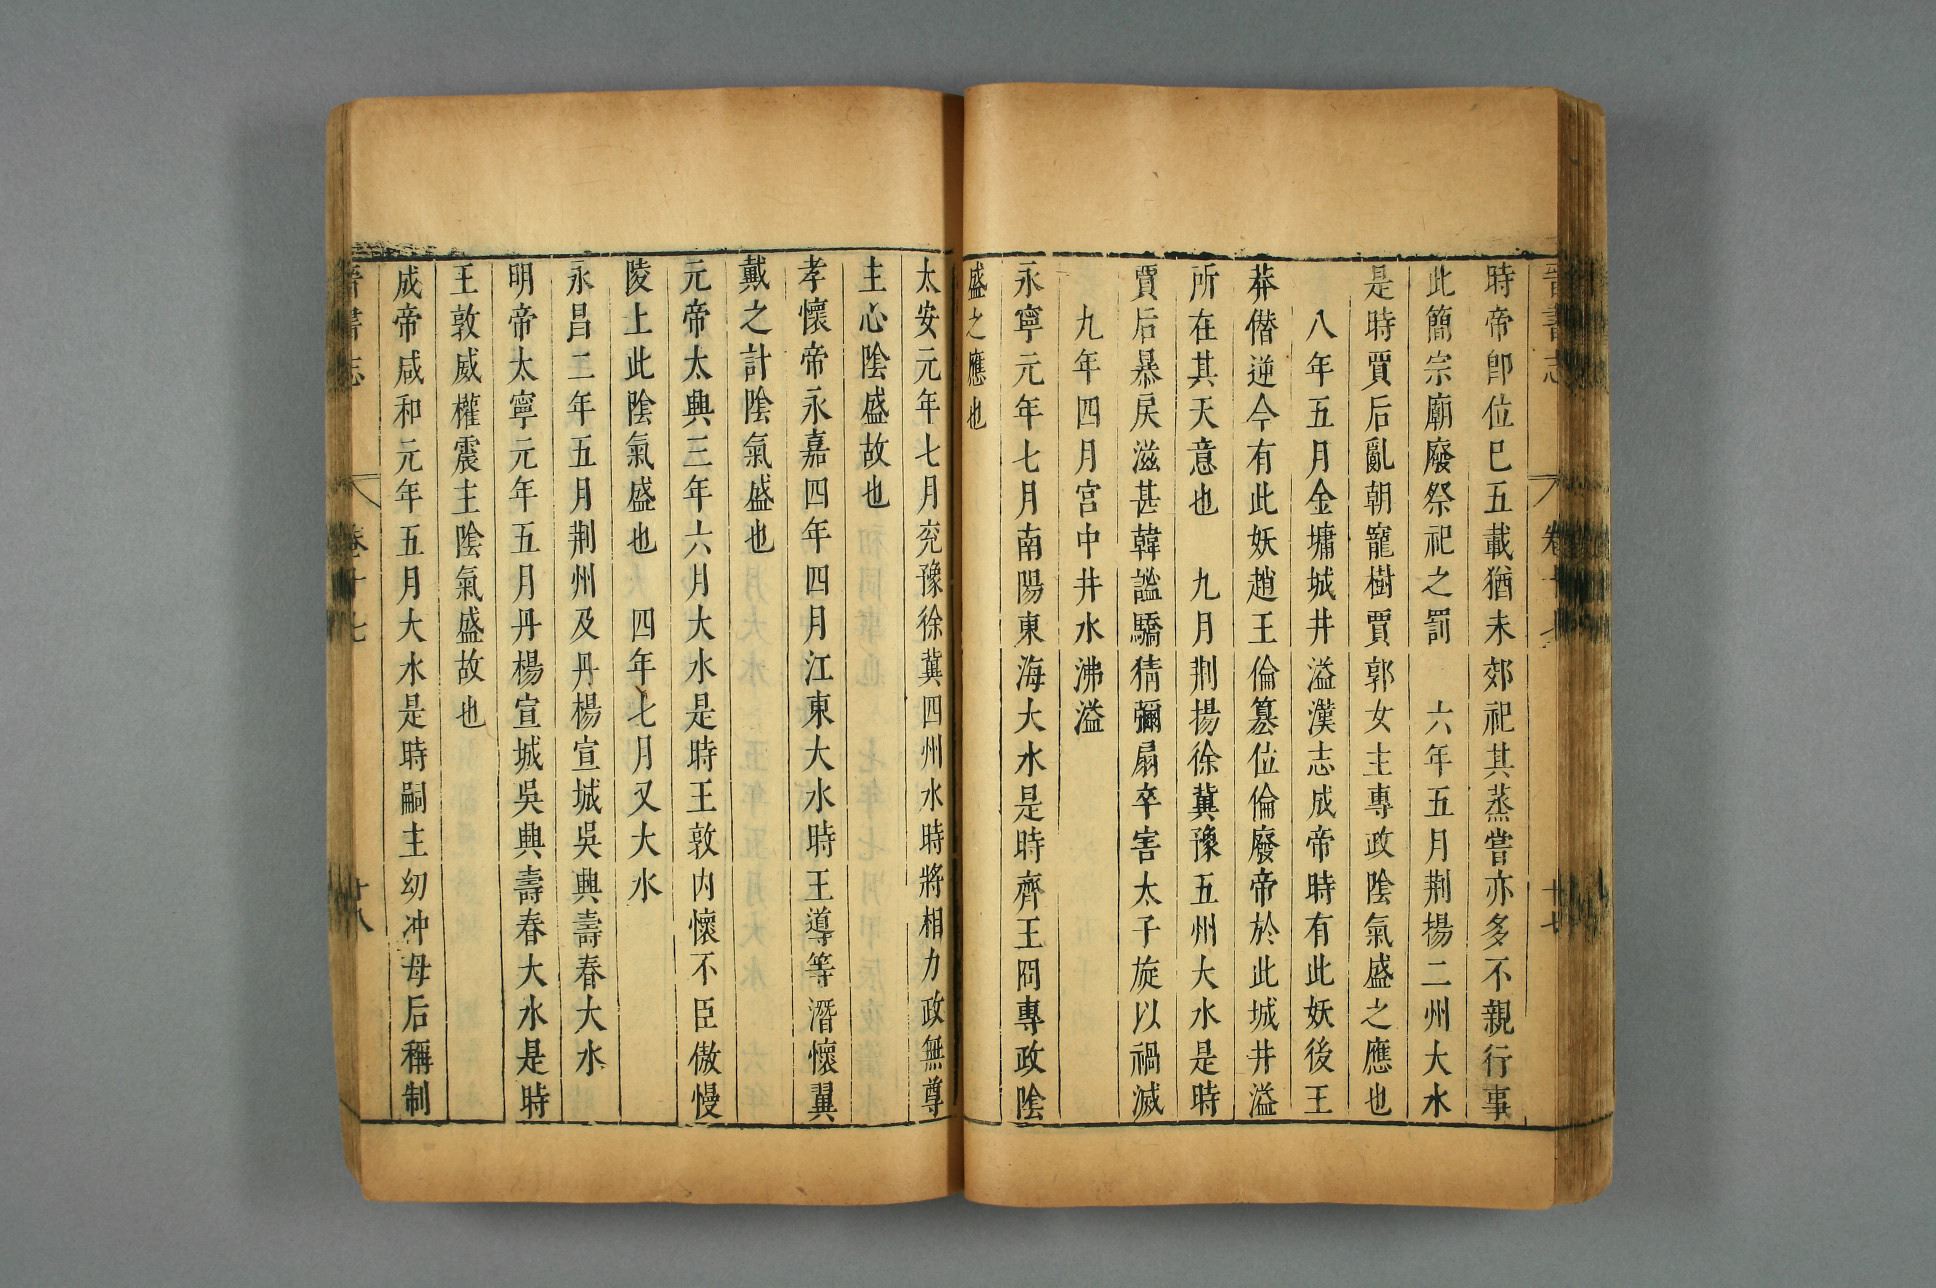 時帝卽位巳五載猶未郊祀其蒸嘗亦多不親行事
此簡宗廟廢祭祀之罰　六年五月荆揚二州大水
是時賈后亂朝寵樹賈郭女主專政陰氣盛之應也
八年五月金墉城井溢漢志成帝時有此妖後王
莽僭逆今有此妖趙王倫簒位倫廢帝於此城井溢
所在其天意也　九月荆揚徐冀豫五州大水是時
賈后暴戾滋甚韓謐驕猜彌扇卒害太子旋以禍滅
九年四月宮中井水沸溢
永寧元年七月南陽東海大水是時齊王冏專政陰
盛之應也
太安元年七月兖豫徐冀四州水時將相力政無尊
主心陰盛故也
孝懷帝永嘉四年四月江東大水時王導等潛懷翼
戴之計陰氣盛也
元帝太興三年六月大水是時王敦内懷不臣傲慢
陵上此陰氣盛也　四年七月又大水
永昌二年五月荆州及丹楊宣城吳興壽春大水
明帝太寧元年五月丹楊宣城吳興壽春大水是時
王敦威權震主陰氣盛故也
成帝咸和元年五月大水是時嗣主幼冲母后稱制
晉書志　卷十七　廿八